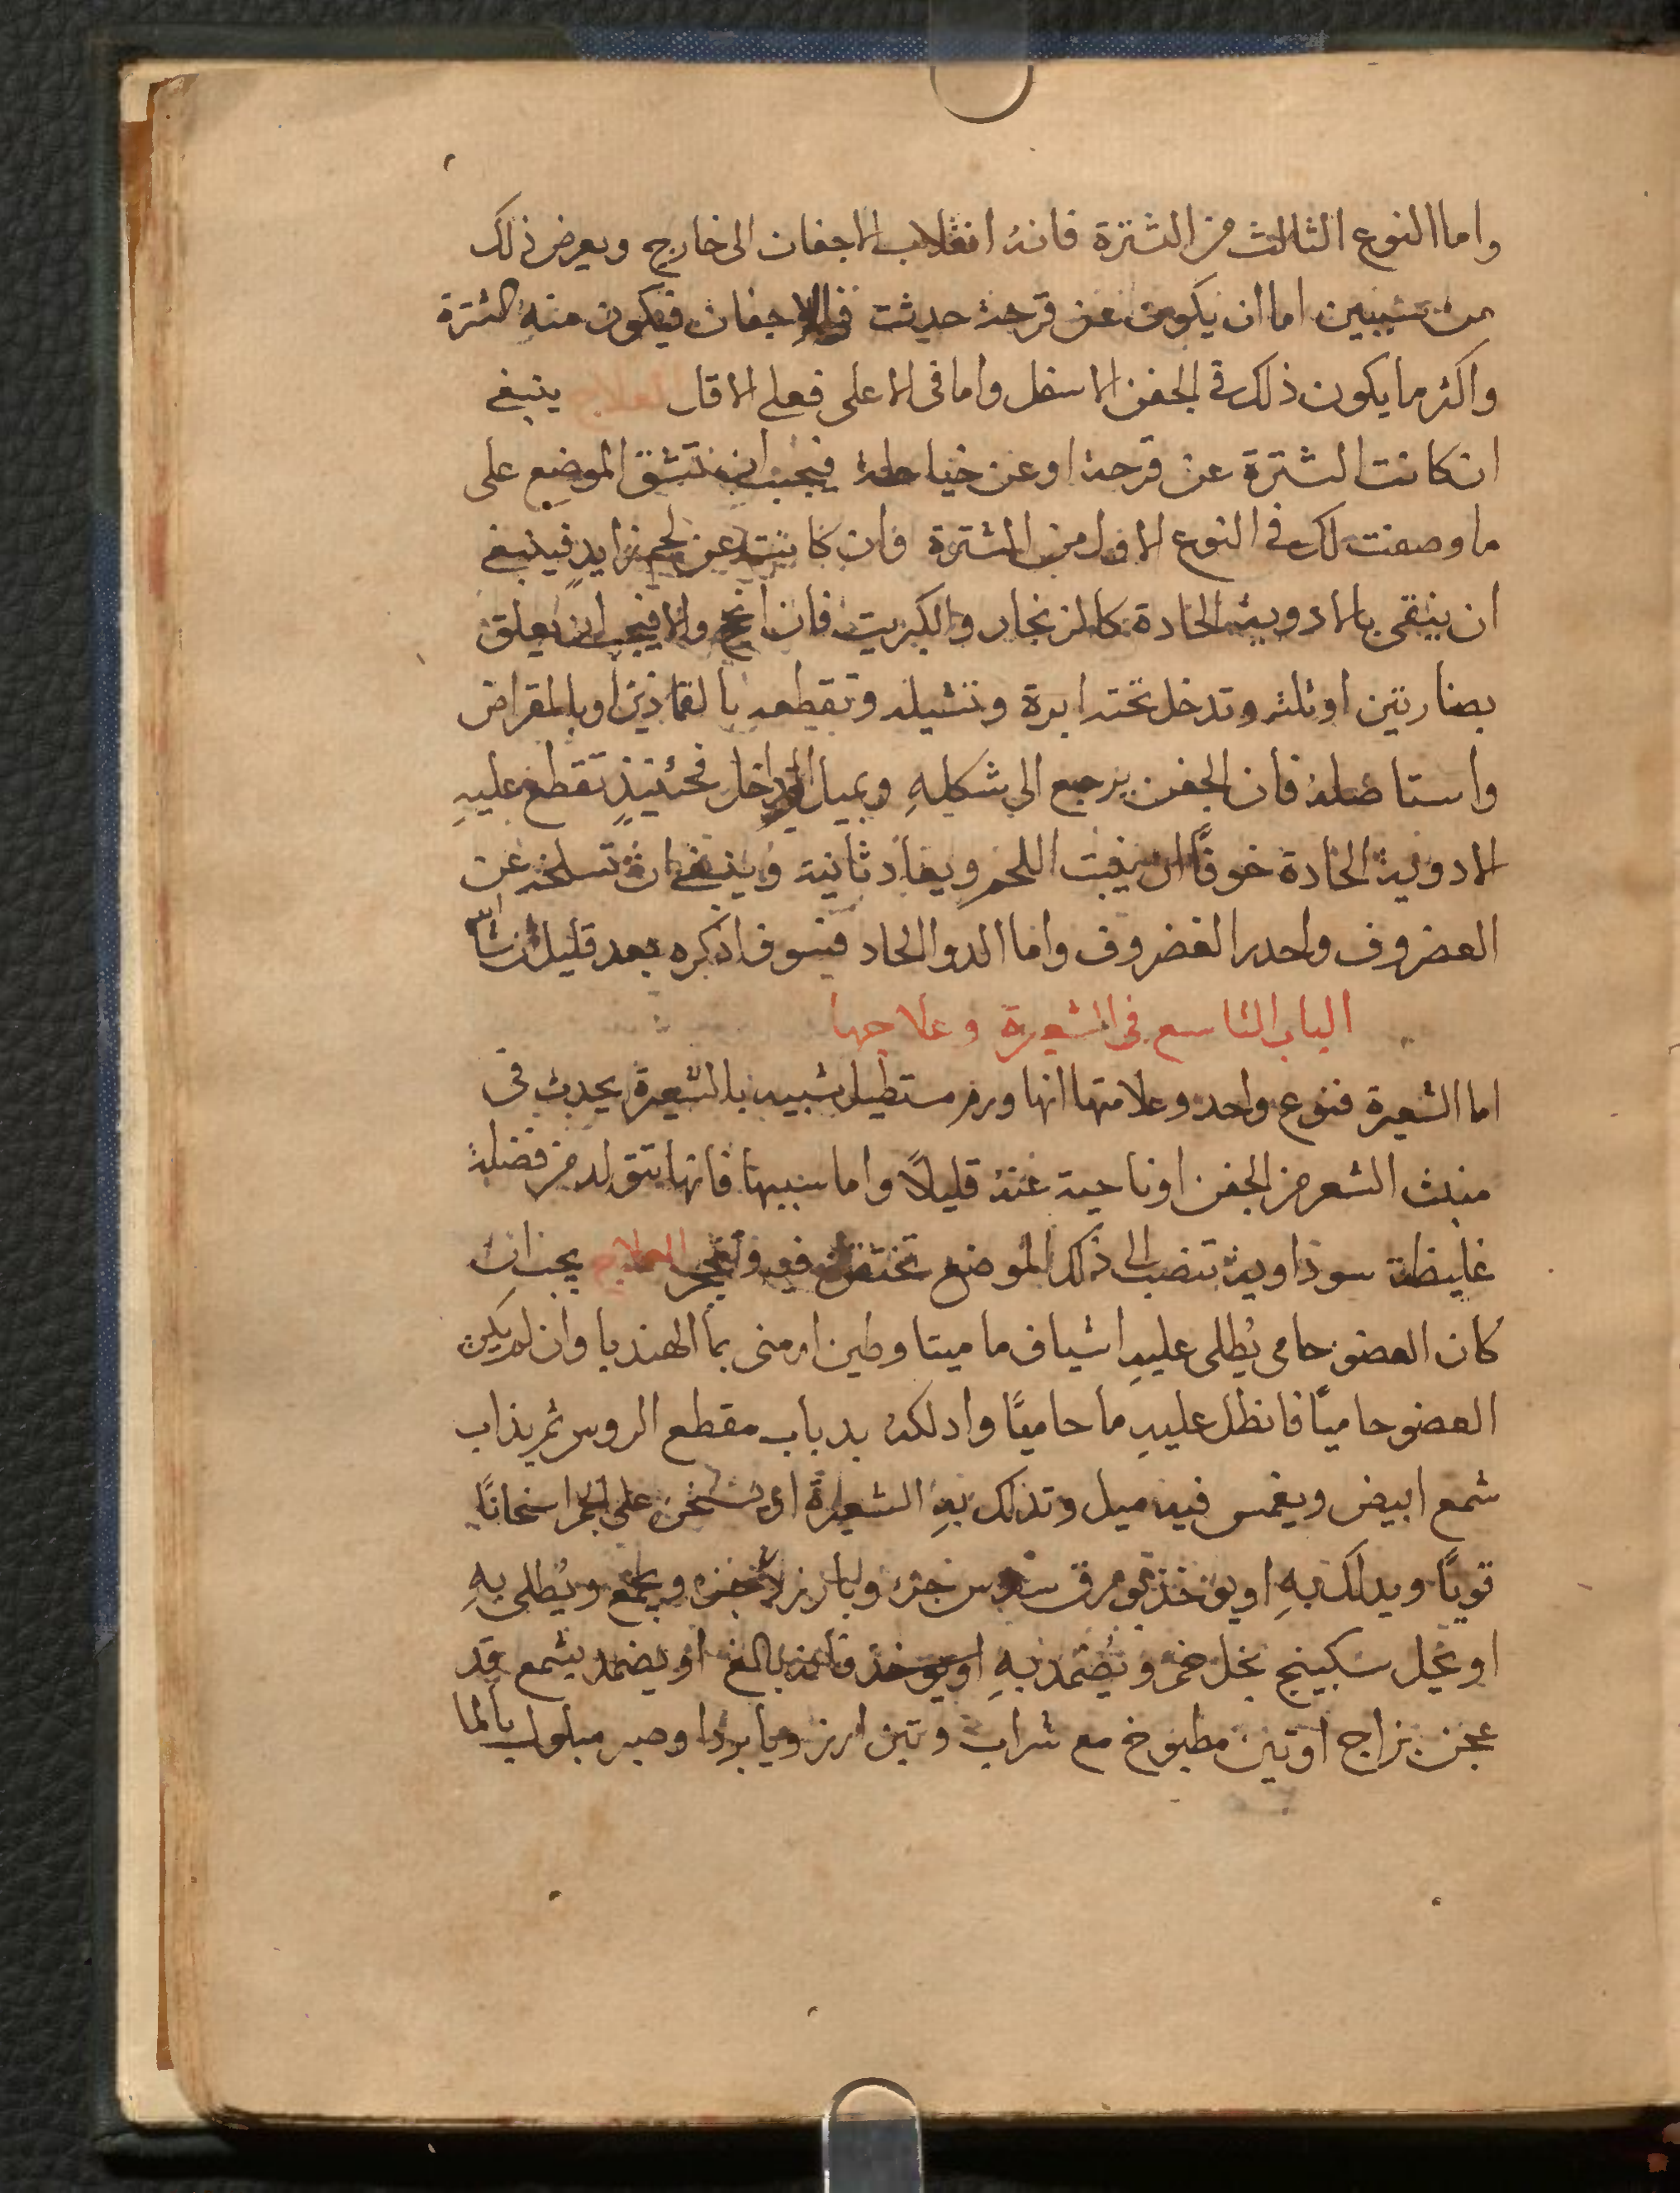 واما النوع الثالث من الشترة فانه انقلاب الاجفان الى خارج ويعرض ذلك
من سببين اما ان يكون عن قرحة حدثت في الاجفان فيكون منه الشترة
واكثر ما يكون ذلك في الجفن الاسفل واما في الاعلى فعلى الاقل العلاج ينبغي
ان كانت الشترة عن قرحة او عن خياطة فيجب ان تشق الموضع على
ما وصفت لك في النوع الاول من الشترة وان كانت عن لحم زايد فينبغي
ان ينقى بالادوية الحادة كالزنجار والكبريت فان انجح والا فيجب ان يعلق
بصنارتين او ثلثه وتدخل تحته ابرة وتشيله وتقطعه بالقمادين او بالمقراض
واستاصله فان الجفن يرجع الى شكله ويميل الى داخل فحينئذٍ تقطع عليهِ
الادوية الحادة خوفًا ان ينبت اللحم ويعاد ثانية وينبغي ان تسلخه عن
الغضروف واحدر الغضروف واما الدوا الحاد فسوف اذكره بعد قليل ان شا الله
الباب التاسع في الشعيرة وعلاجها
اما الشعيرة فنوع واحد وعلامتها انها ورم مستطيل شبيه بالشعيرة يحدث في
منبت الشعر من الجفن او ناحية عنه قليلًا واما سببها فانها تتولد من فضلة
غليظة سوداوية تنصب الى ذلك الموضع تحتقن فيه وتتحجر العلاج يجب ان
كان العضو حامي يُطلى عليهِ اشياف ماميتا وطين ارمنى بما الهندبا وان لم يكن
العضو حاميًا فانطل عليهِ ما حاميًا وادلكه بدباب مقطع الروس ثم يذاب
شمع ابيض ويغمس فيه ميل وتدلك بهِ الشعيرة او يسخن على الجمر اسخانًا
قويًا ويدلك بهِ او يوخذ بورق سدس جزء وبارزد جزء ويجمع ويُطلى بهِ
او يحل سكبينج بخل خمر ويُضمد بهِ او يوخذ بالغ او يضمد بشمع قد
عجن بزاج او تين مطبوخ مع شراب وتين ارز وبا بردا وصبر مبلول بالما